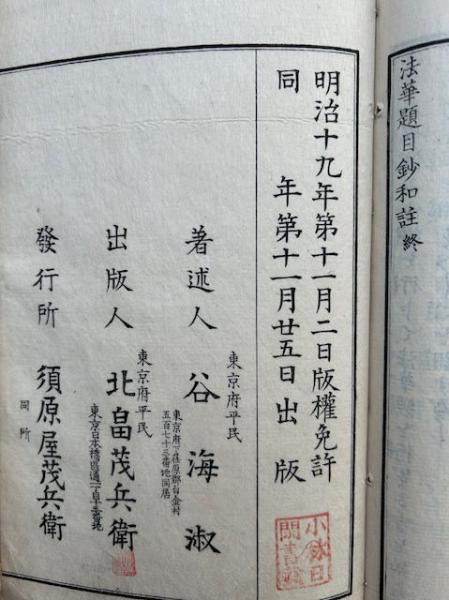 法華題目鈔和註 終
明治十九年第十一月二日版權免許
同 年第十一月廿五日出版
東京府平民
著述人 谷海淑
東京府下荏原郡白金村
五百七十三番地同居
東京府平民
出版人 北畠茂兵衛
東京日本橋區通一丁目
發行所 須原屋茂兵衛
同所